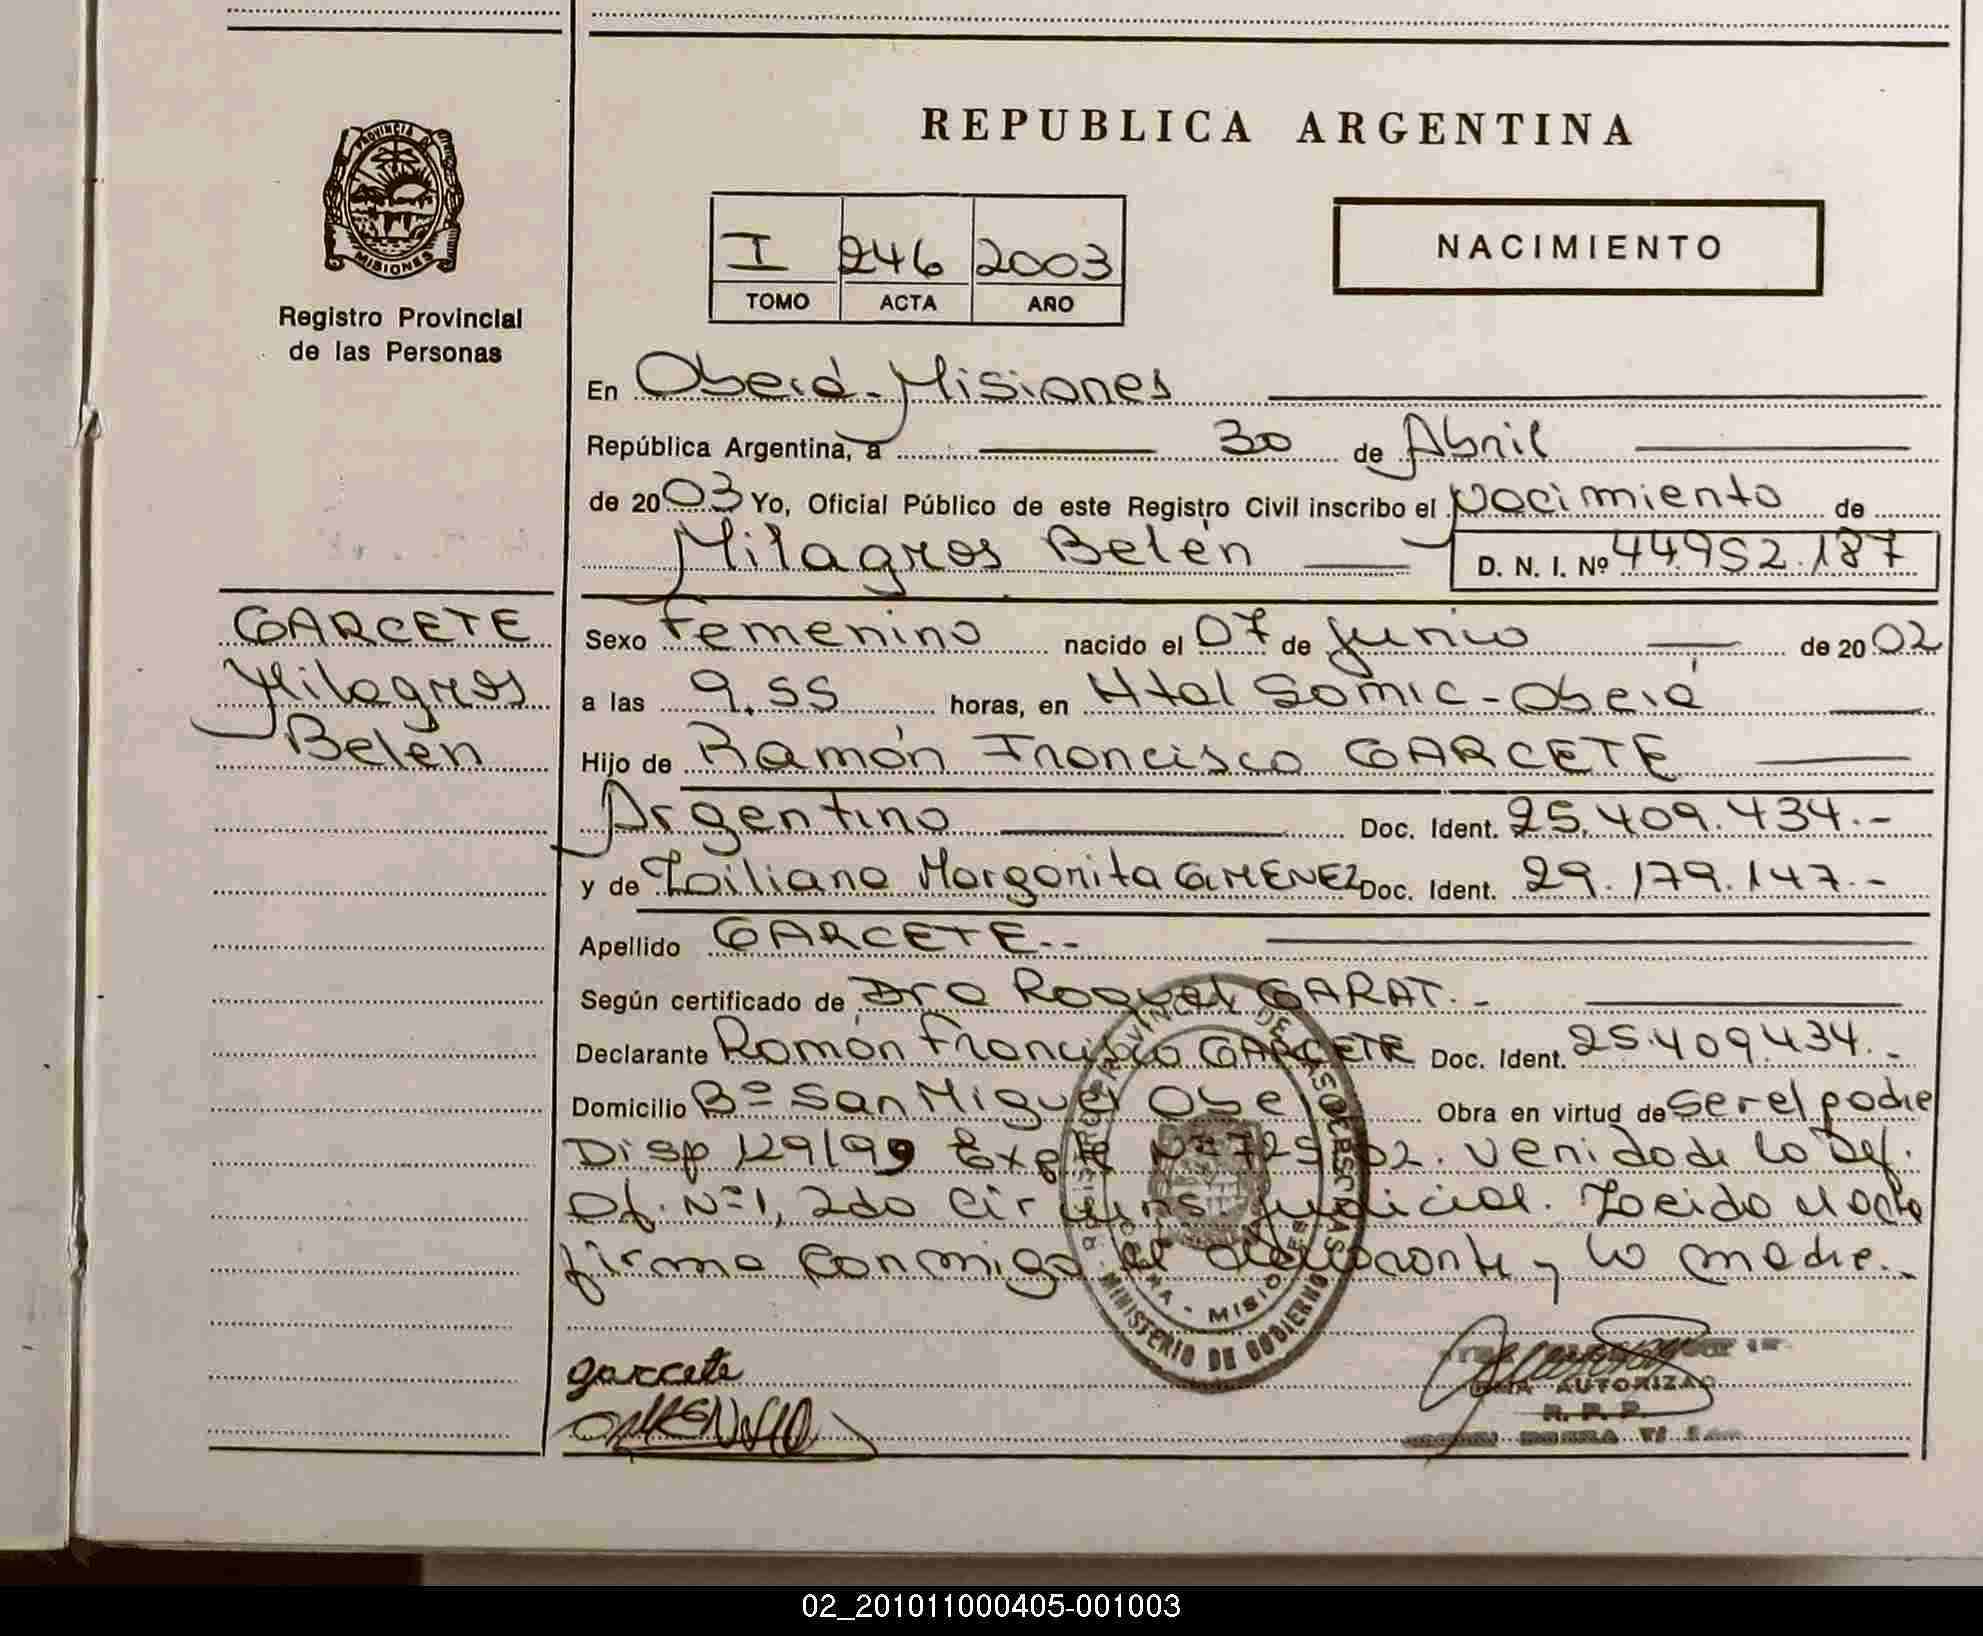 REPUBLICA ARGENTINA
PROVINCIA DE
MISIONES
Registro Provincial
de las Personas
I 246 2003
TOMO ACTA AÑO
NACIMIENTO
En Oberá - Misiones
República Argentina, a 30 de Abril
de 2003 Yo, Oficial Público de este Registro Civil inscribo el nacimiento de
Milagros Belén D. N. I. Nº 44.952.187
GARCETE
Milagros
Belén
Sexo Femenino nacido el 07 de Junio de 2002
a las 9.55 horas, en Htal Samic - Oberá
Hijo de Ramón Francisco GARCETE
Argentino Doc. Ident. 25.409.434.-
y de Liliana Margarita GIMENEZ Doc. Ident. 29.179.147.-
Apellido GARCETE.-
Según certificado de Dra Raquel GARAT.-
Declarante Ramón Francisco GARCETE Doc. Ident. 25.409.434.-
Domicilio Bº San Miguel Oberá Obra en virtud de ser el padre
Disp 129/99 Expte Nº 725/02. venido de la Def.
Of. Nº 1, 2da Circuns Judicial. Leido el acta
firma conmigo el declarante y la madre.-
MINISTERIO DE GOBIERNO
garcete
GIMENEZ
AUTORIZAD
R. P. P.
02_201011000405-001003